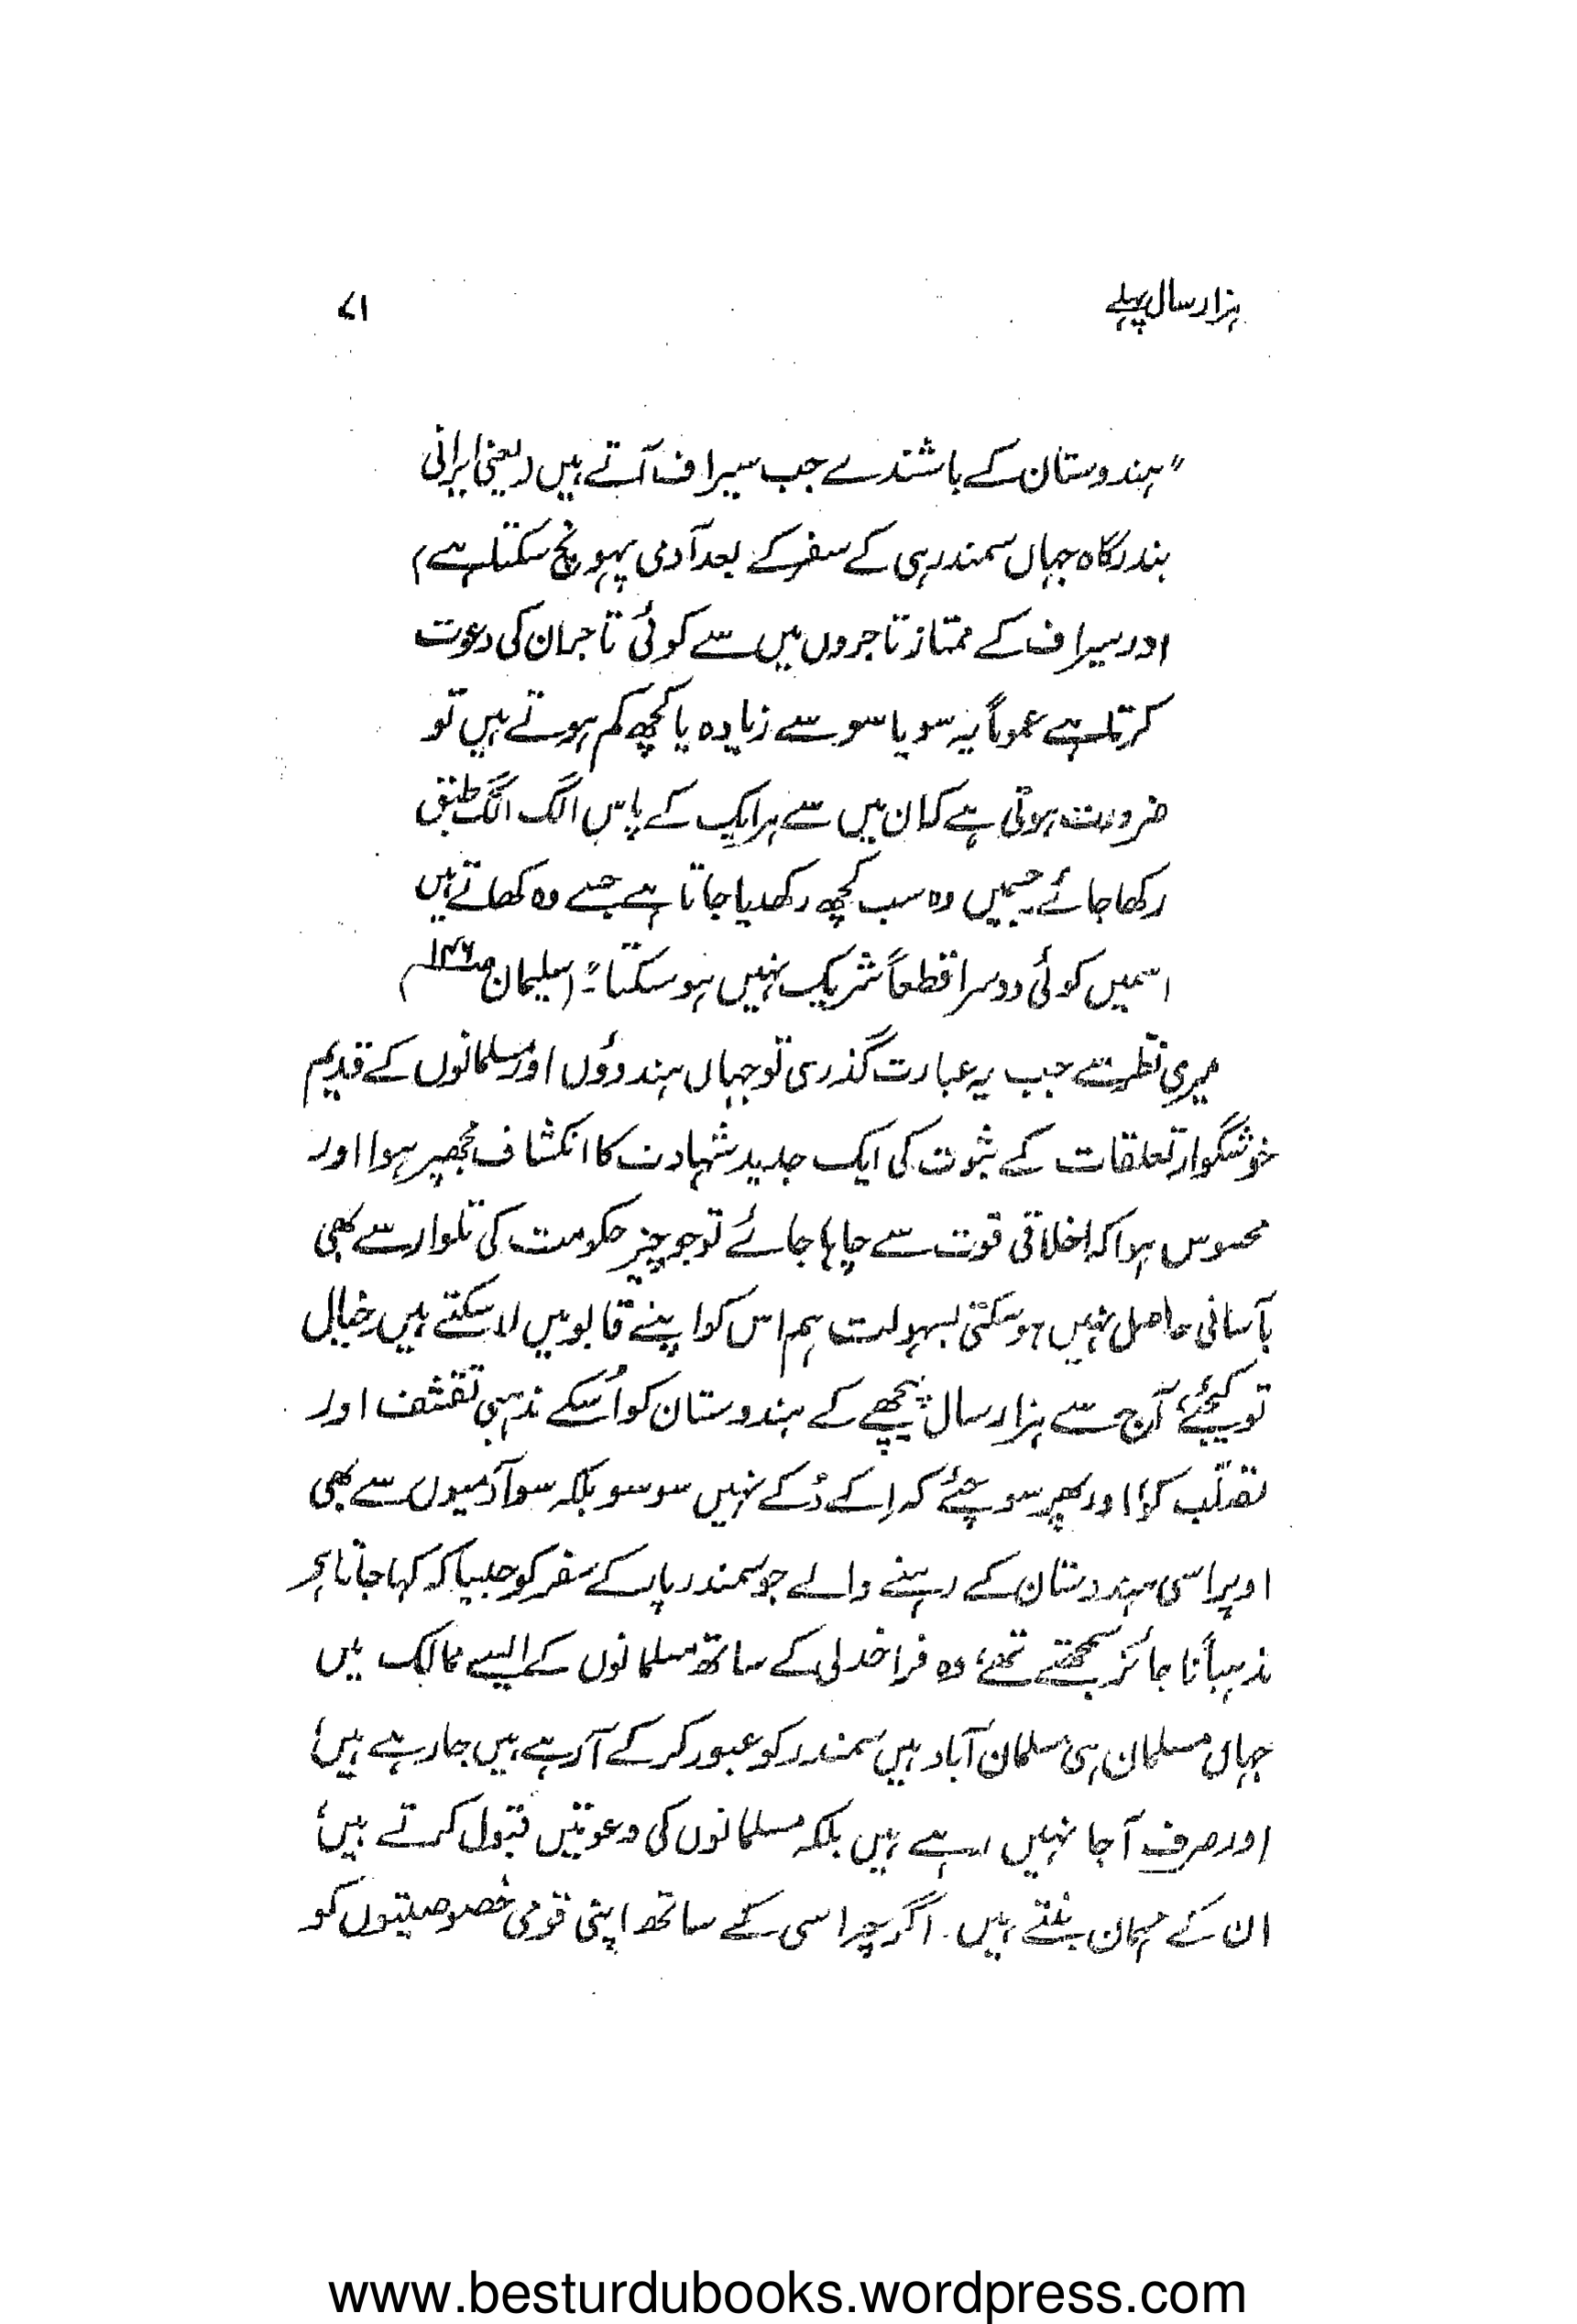 ہزار سال پہلے
۷۱
"ہندوستان کے باشندے جب سیراف آتے ہیں (یعنی ایرانی
بندرگاہ جہاں سمندر ہی کے سفر کے بعد آدمی پہونچ سکتا ہے)
اور سیراف کے ممتاز تاجروں میں سے کوئی تاجر ان کی دعوت
کرتا ہے عموماً یہ سو یا سو سے زیادہ یا کچھ کم ہوتے ہیں تو
ضرورت ہوتی ہے کہ ان میں سے ہر ایک کے پاس الگ الگ طبق
رکھا جائے جسمیں وہ سب کچھ رکھدیا جاتا ہے جسے وہ کھاتے ہیں
اسمیں کوئی دوسرا قطعاً شریک نہیں ہو سکتا"۔ (سلیمان ص۱۴۶)
میری نظر سے جب یہ عبارت گذری تو جہاں ہندوؤں اور مسلمانوں کے قدیم
خوشگوار تعلقات کے ثبوت کی ایک جدید شہادت کا انکشاف مجھپر ہوا اور
محسوس ہوا کہ اخلاقی قوت سے چاہا جائے تو جو چیز حکومت کی تلوار سے بھی
بآسانی حاصل نہیں ہو سکتی بسہولت ہم اس کو اپنے قابو میں لا سکتے ہیں، خیال
تو کیجئے آج سے ہزار سال پیچھے کے ہندوستان کو اُسکے مذہبی تقشف اور
تصلّب کو، اور پھر سوچئے کہ اِکے دُکے نہیں سو سو بلکہ سو آدمیوں سے بھی
اوپر اسی ہندوستان کے رہنے والے جو سمندر پار کے سفر کو جیسا کہ کہا جاتا ہر
مذہباً ناجائز سمجھتے تھے، وہ فراخدلی کے ساتھ مسلمانوں کے ایسے ممالک میں
جہاں مسلمان ہی مسلمان آباد ہیں سمندر کو عبور کر کے آرہے ہیں جارہے ہیں،
اور صرف آجا نہیں رہے ہیں بلکہ مسلمانوں کی دعوتیں قبول کرتے ہیں،
ان کے مہمان بنتے ہیں۔ اگرچہ اسی کے ساتھ اپنی قومی خصوصیتوں کو
www.besturdubooks.wordpress.com